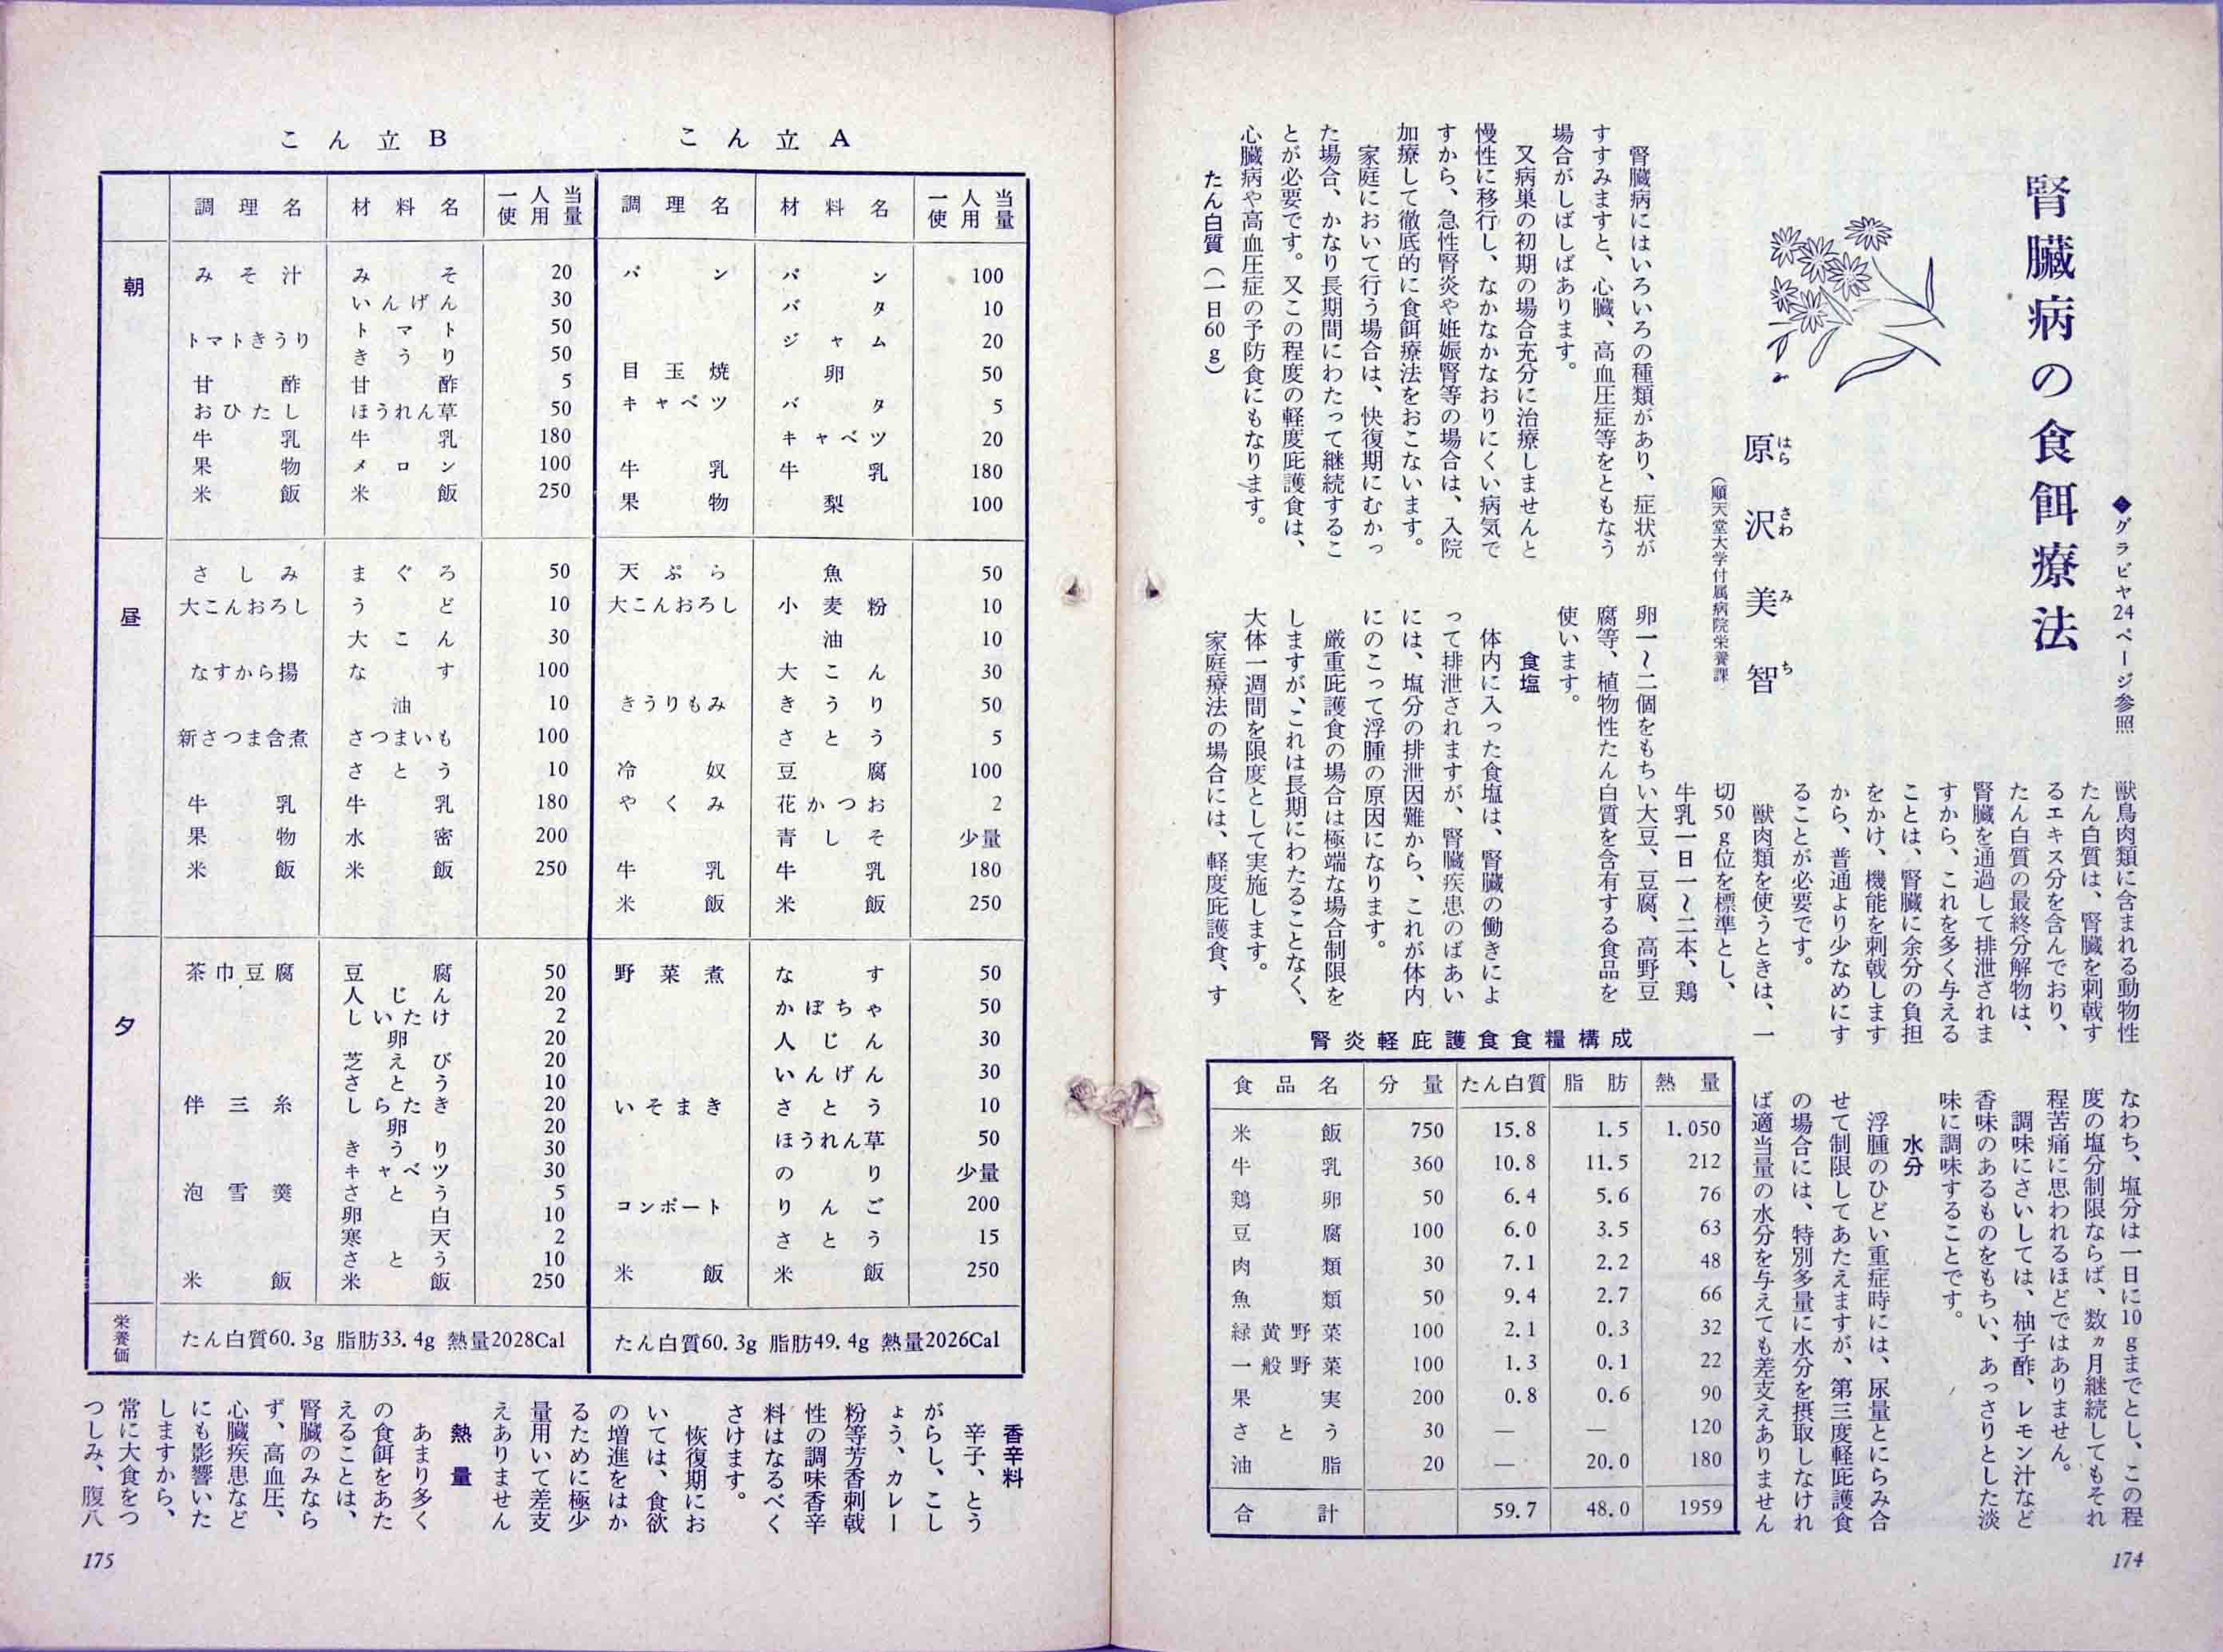 腎臓病の食餌療法
◆グラビヤ24ページ参照
原沢美智
はらさわみち
(順天堂大学付属病院栄養課)
腎臓病にはいろいろの種類があり、症状が
すすみますと、心臓、高血圧症等をともなう
場合がしばしばあります。
又病巣の初期の場合充分に治療しませんと
慢性に移行し、なかなかなおりにくい病気で
すから、急性腎炎や妊娠腎等の場合は、入院
加療して徹底的に食餌療法をおこないます。
家庭において行う場合は、快復期にむかっ
た場合、かなり長期間にわたって継続するこ
とが必要です。又この程度の軽度庇護食は、
心臓病や高血圧症の予防食にもなります。
たん白質(一日60g)
獣鳥肉類に含まれる動物性
たん白質は、腎臓を刺戟す
るエキス分を含んでおり、
たん白質の最終分解物は、
腎臓を通過して排泄されま
すから、これを多く与える
ことは、腎臓に余分の負担
をかけ、機能を刺戟します
から、普通より少なめにす
ることが必要です。
獣肉類を使うときは、一
切50g位を標準とし、
牛乳一日一〜二本、鶏
卵一〜二個をもちい大豆、豆腐、高野豆
腐等、植物性たん白質を含有する食品を
使います。
食塩
体内に入った食塩は、腎臓の働きによ
って排泄されますが、腎臓疾患のばあい
には、塩分の排泄因難から、これが体内
にのこって浮腫の原因になります。
厳重庇護食の場合は極端な場合制限を
しますが、これは長期にわたることなく、
大体一週間を限度として実施します。
家庭療法の場合には、軽度庇護食、す
なわち、塩分は一日に10gまでとし、この程
度の塩分制限ならば、数ヵ月継続してもそれ
程苦痛に思われるほどではありません。
調味にさいしては、柚子酢、レモン汁など
香味のあるものをもちい、あっさりとした淡
味に調味することです。
水分
浮腫のひどい重症時には、尿量とにらみ合
せて制限してあたえますが、第三度軽庇護食
の場合には、特別多量に水分を摂取しなけれ
ば適当量の水分を与えても差支えありません
腎炎軽庇護食食糧構成
食品名 分量 たん白質 脂肪 熱量
米飯 750 15.8 1.5 1.050
牛乳 360 10.8 11.5 212
鶏卵 50 6.4 5.6 76
豆腐 100 6.0 3.5 63
肉類 30 7.1 2.2 48
魚類 50 9.4 2.7 66
緑黄野菜 100 2.1 0.3 32
一般野菜 100 1.3 0.1 22
果実 200 0.8 0.6 90
さとう 30 — — 120
油脂 20 — 20.0 180
合計 59.7 48.0 1959
174
こん立A
調理名 材料名 一人当使用量
パン パン 100
バタ 10
ジャム 20
目玉焼 卵 50
キャベツ バタ 5
キャベツ 20
牛乳 牛乳 180
果物 梨 100
天ぷら 魚 50
大こんおろし 小麦粉 10
油 10
大こん 30
きうりもみ きうり 50
さとう 5
冷奴 豆腐 100
やくみ 花かつお 2
青しそ 少量
牛乳 牛乳 180
米飯 米飯 250
野菜煮 なす 50
かぼちゃ 50
人じん 30
いんげん 30
いそまき さとう 10
ほうれん草 50
のり 少量
コンポート りんご 200
さとう 15
米飯 米飯 250
たん白質60.3g 脂肪49.4g 熱量2026Cal
こん立B
調理名 材料名 一人当使用量
朝
みそ汁 みそ 20
いんげん 30
トマトきうり トマト 50
きうり 50
甘酢 甘酢 5
おひたし ほうれん草 50
牛乳 牛乳 180
果物 メロン 100
米飯 米飯 250
昼
さしみ まぐろ 50
大こんおろし うど 10
大こん 30
なすから揚 なす 100
油 10
新さつま含煮 さつまいも 100
さとう 10
牛乳 牛乳 180
果物 水密 200
米飯 米飯 250
夕
茶巾豆腐 豆腐 50
人じん 20
しいたけ 2
卵 20
芝えび 20
さとう 10
伴三糸 しらたき 20
卵 20
きうり 30
キャベツ 30
泡雪羹 さとう 5
卵白 10
寒天 2
さとう 10
米飯 米飯 250
栄養価
たん白質60.3g 脂肪33.4g 熱量2028Cal
香辛料
辛子、とう
がらし、こし
ょう、カレー
粉等芳香刺戟
性の調味香辛
料はなるべく
さけます。
恢復期にお
いては、食欲
の増進をはか
るために極少
量用いて差支
えありません
熱量
あまり多く
の食餌をあた
えることは、
腎臓のみなら
ず、高血圧、
心臓疾患など
にも影響いた
しますから、
常に大食をつ
つしみ、腹八
175